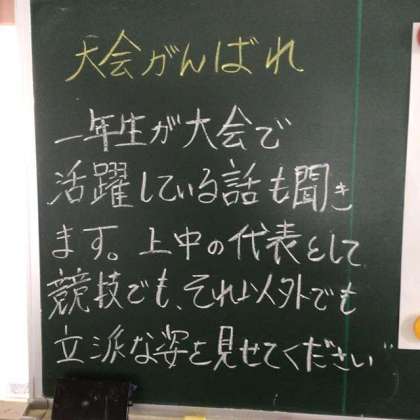 大会がんばれ
一年生が大会で
活躍している話も聞き
ます。上中の代表として
競技でも、それ以外でも
立派な姿を見せてください